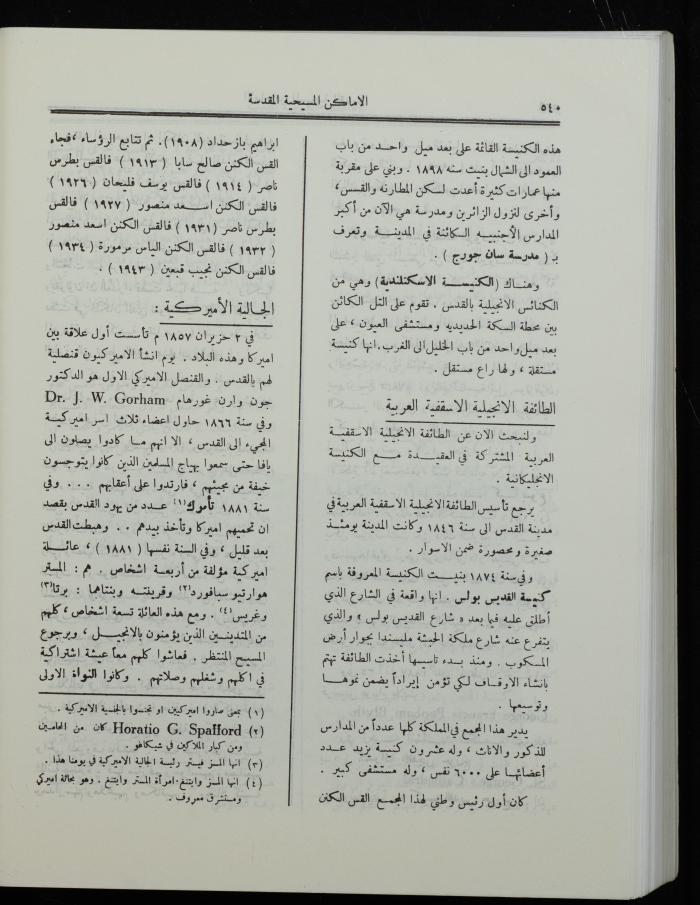 ٥٤٠
الاماكن المسيحية المقدسة
هذه الكنيسة القائمة على بعد ميل واحد من باب
العمود الى الشمال بنيت سنه ١٨٩٨ . وبني على مقربة
منها عمارات كثيرة أعدت لسكن المطارنه والقسس،
وأخرى لنزول الزائرين ومدرسة هي الآن من أكبر
المدارس الأجنبيه الكائنة في المدينة وتعرف
بـ ( مدرسة سان جورج ) .
وهناك (الكنيسة الاسكتلندية) وهي من
الكنائس الانجيلية بالقدس . تقوم على التل الكائن
بين محطة السكة الحديديه ومستشفى العيون ، على
بعد ميل واحد من باب الخليل الى الغرب. انها كنيسة
مستقلة ، ولها راع مستقل .
الطائفة الانجيلية الاسقفية العربية
ولنبحث الان عن الطائفة الانجيلية الاسقفية
العربية المشتركة في العقيدة مع الكنيسة
الانجليكانية .
يرجع تأسيس الطائفة الانجيلية الاسقفية العربية في
مدينة القدس الى سنة ١٨٤٦ وكانت المدينة يومئذ
صغيرة ومحصورة ضمن الاسوار .
وفي سنة ١٨٧٤ بنيت الكنيسة المعروفة باسم
كنيسة القديس بولس . انها واقعة في الشارع الذي
أطلق عليه فيما بعد « شارع القديس بولس » والذي
يتفرع عنه شارع ملكة الحبشة مليسندا بجوار أرض
المسكوب . ومنذ بدء تاسيسها أخذت الطائفة تهتم
بانشاء الاوقاف لكي تؤمن إيراداً يضمن نموها
وتوسيعها .
يدير هذا المجمع في المملكة كلها عدداً من المدارس
للذكور والاناث ، وله عشرون كنيسة يزيد عدد
أعضائها على ٦٠٠٠ نفس ، وله مستشفى كبير .
كان أول رئيس وطني لهذا المجمع القس الكنن
ابراهيم باز حداد (١٩٠٨). ثم تتابع الرؤساء ، فجاء
القس الكنن صالح سابا ( ١٩١٣ ) فالقس بطرس
ناصر ( ١٩١٤ ) فالقس يوسف فليحان ( ١٩٢٦ )
فالقس الكنن اسعد منصور ( ١٩٢٧ ) فالقس
بطرس ناصر (١٩٣١) فالقس الكنن اسعد منصور
( ١٩٣٢ ) فالقس الكنن الياس مرمورة ( ١٩٣٤ )
فالقس الكنن نجيب قبعين ( ١٩٤٣ ) .
الجالية الأميركية :
في ٢ حزيران ١٨٥٧ م تأسست أول علاقة بين
اميركا وهذه البلاد . يوم انشأ الاميركيون قنصلية
لهم بالقدس . والقنصل الاميركي الاول هو الدكتور
جون وارن غورهام Dr. J. W. Gorham
وفي سنة ١٨٦٦ حاول اعضاء ثلاث اسر اميركية
المجيء الى القدس ، الا انهم ما كادوا يصلون الى
يافا حتى سمعوا بهياج المسلمين الذين كانوا يتوجسون
خيفة من مجيئهم ، فارتدوا على أعقابهم ... وفي
سنة ١٨٨١ تأموك(١) عدد من يهود القدس بقصد
ان تحميهم اميركا وتأخذ بيدهم .. وهبطت القدس
بعد قليل ، وفي السنة نفسها ( ١٨٨١ ) ، عائلة
اميركية مؤلفة من أربعة اشخاص . هم : المستر
هوارتيو سبافورد(٢) وقرينته وبنتاهما : برتا(٣)
وغريس(٤) . ومع هذه العائلة تسعة اشخاص ، كلهم
من المتدينين الذين يؤمنون بالانجيل ، وبرجوع
المسيح المنتظر . فعاشوا كلهم معاً عيشة اشتراكية
في اكلهم وشغلهم وصلاتهم . وكانوا النواة الاولى
(١) بمعنى صاروا اميركيين او تجنسوا بالجنسية الاميركية .
(٢) Horatio G. Spafford كان من المحامين
ومن كبار الملاكين في شيكاغو .
(٣) انها المسز فيستر رئيسة الجالية الاميركية في يومنا هذا .
(٤) انها المسز وايتنغ . امرأة المستر وايتنغ . وهو بحاثة اميركي
ومستشرق معروف .